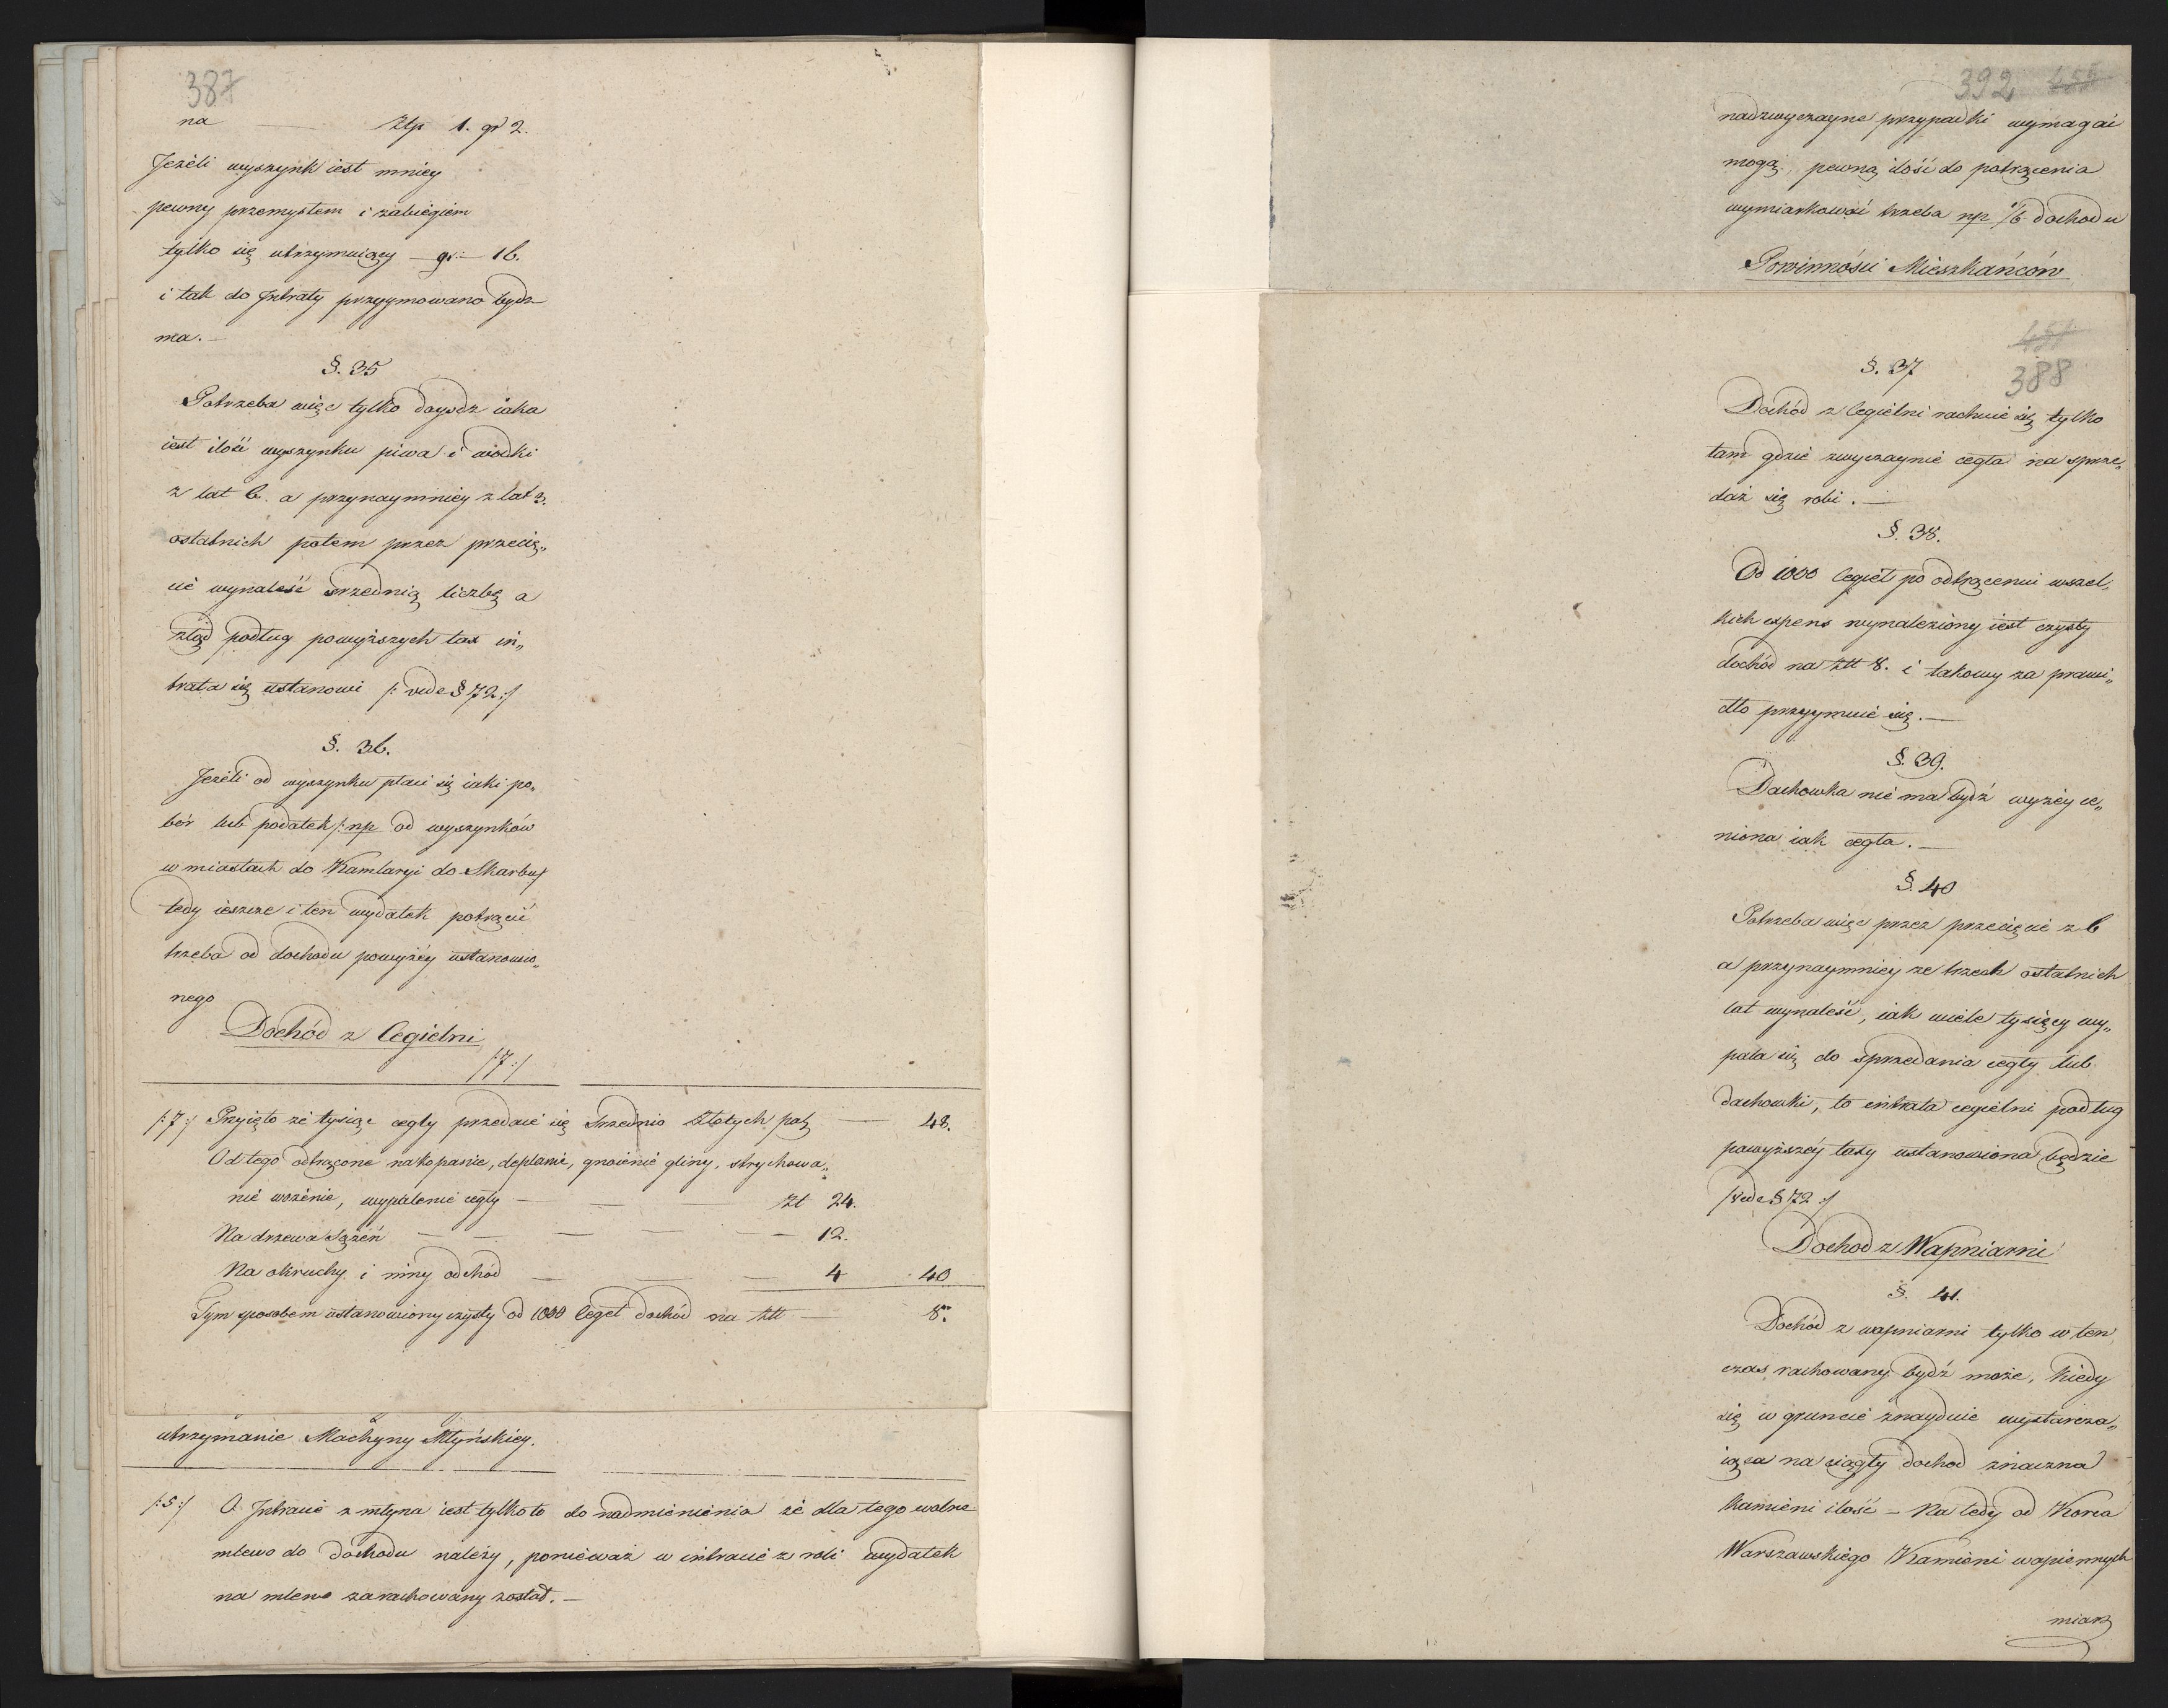 387
na — Złp 1. gr 2.
Jeżeli wyszynk iest mniey
pewny przemysłem i zabiegiem
tylko się utrzymuiący — gr:— 16.
i tak do Jntraty przyymowano bydz
ma.—
§. 35
Potrzeba więc tylko doysdz iaka
iest ilość wyszynku piwa i wódki
z lat 6. a przynaymniey z lat 3.
ostatnich potem przez przecię„
cie wynaleść srzednią liczbę a
ztąd podług powyższych tax in„
trata się ustanowi /: vide § 72 :/
§. 36.
Jeżeli od wyszynku płaci się iaki po„
bór lub podatek /: np od wyszynków
w miastach do Kamlaryi do Skarbu/
tedy ieszcze i ten wydatek potrącić
trzeba od dochodu powyżéy ustanowio„
nego
Dochód z Cegielni
/:7:/
/:7:/ Przyięto że tysiąc cegły przedaie się srzednio Złotych pol — 48.
Od tego odtrącone na kopanie, deptanie, gnoienie gliny, strychowa„
nie wożenie, wypalenie cegły — — — Zł 24.
Na drzewa Sążeń — — — — — 12.
Na okruchy i inny odchód — — — 4 . 40
Tym sposobem ustanowiony czysty od 1000 Cegeł dochód na Złł — 8.
utrzymanie Machyny Młyńskiey.
/:5:/ O Jntracie z młyna iest tylko to do nadmienienia że dla tego wolne
mlewo do dochodu należy, ponieważ w intracie z roli wydatek
na mlewo zarachowany został.—
392
nadzwyczayne przypadki wymagać
mogą, pewną ilość do potrącenia
wymiarkować trzeba np 1/6 dochodu
Powinności Mieszkańców
451
388
§. 37
Dochód z Cegielni rachuie się tylko
tam gdzie zwyczaynie cegła na sprze„
daż się robi.—
§. 38.
Od 1000 Cegieł po odtrąceniu wszel„
kich expens wynaleziony iest czysty
dochód na Złł 8. i takowy za prawi„
dło przyymuie się.—
§. 39.
Dachowka nie ma bydź wyżey ce„
niona iak cegła.—
§. 40
Potrzeba więc przez przecięcie z 6
a przynaymniey ze trzech ostatnich
lat wynaleść, iak wiele tysięcy wy„
pala się do sprzedania cegły lub
dachowki, to intrata cegielni podług
powyższéy taxy ustanowiona będzie
/vide § 72 :/
Dochod z Wapniarni
§. 41.
Dochód z wapniarni tylko w ten
czas rachowany bydź może, kiedy
się w gruncie znayduie wystarcza„
iąca na ciągły dochod znaczna
kamieni ilość — Na tedy od Korca
Warszawskiego Kamieni wapiennych
miary